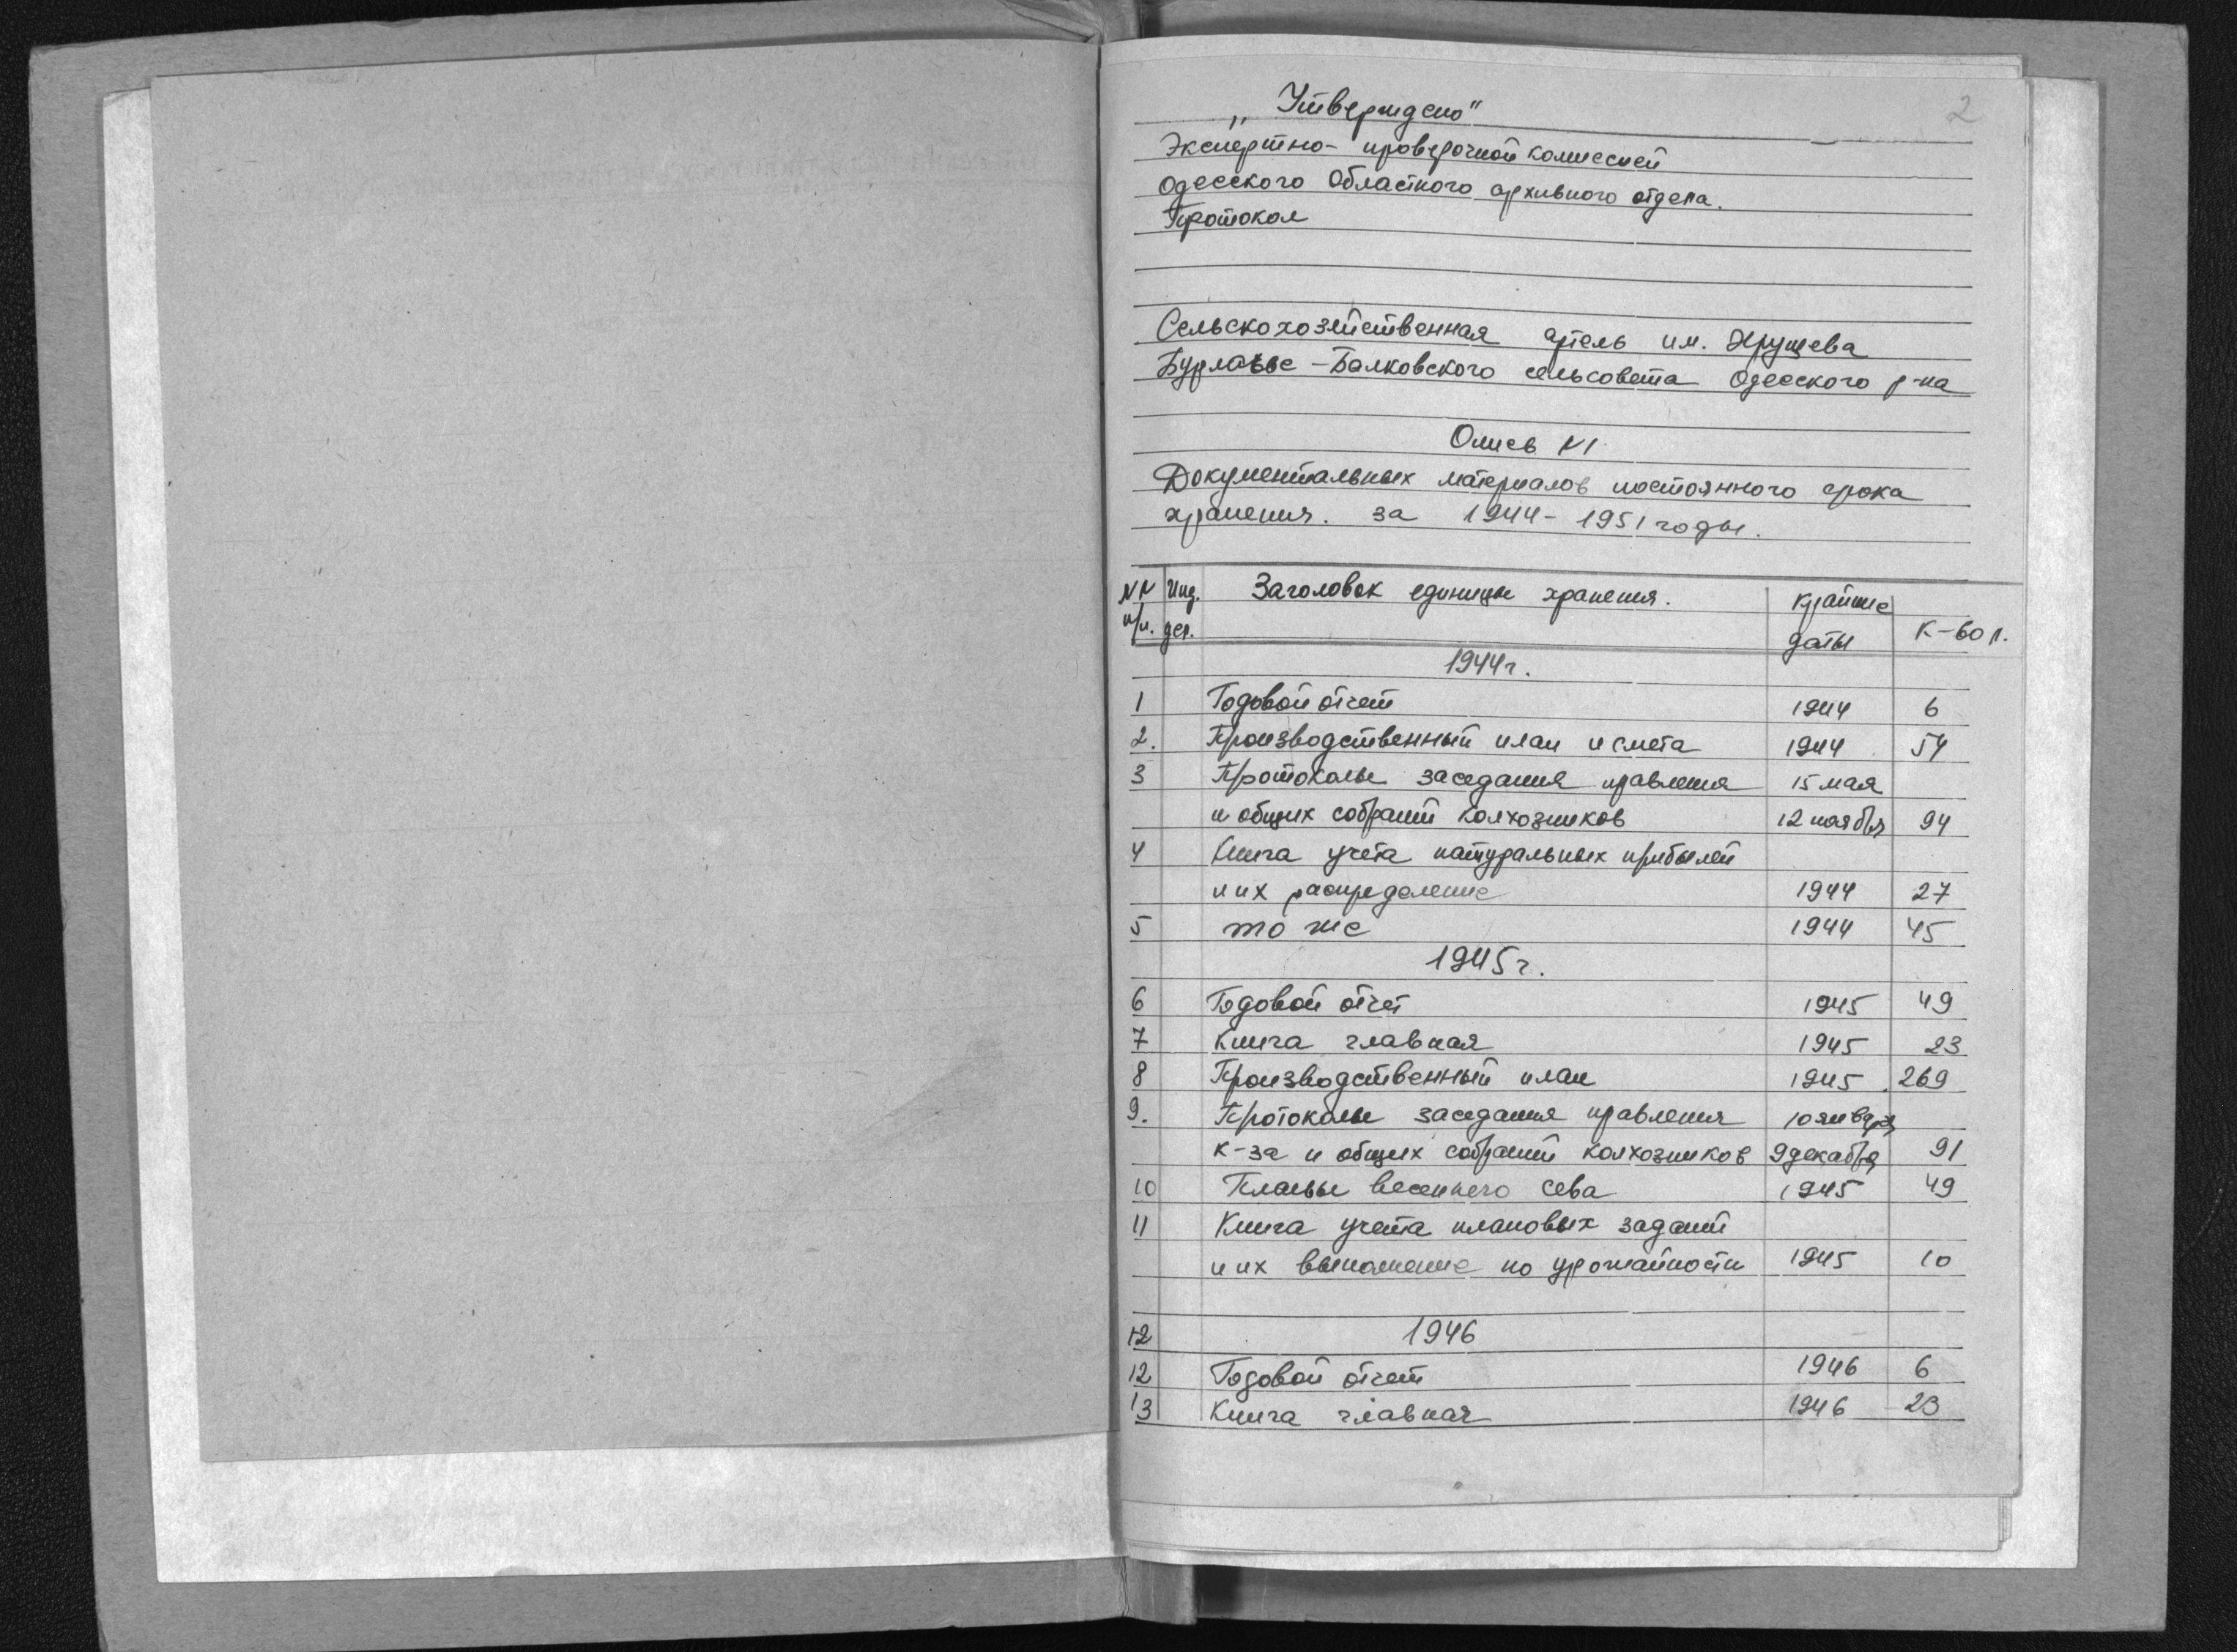 2
„Утверждено"
Экспертно-проверочной комиссией
Одесского Областного архивного отдела.
Протокол
Сельскохозяйственная артель им. Хрущева
Бурлачье-Балковского сельсовета Одесского р-на
Опись №1
Документальных материалов постоянного срока
хранения. за 1944-1951 годы.
NN п/п. Инд. дел. Заголовок единицы хранения. Крайние даты К-во л.
1944г.
1 Годовой отчет 1944 6
2. Производственный план и смета 1944 54
3 Протоколы заседания правления 15 мая
и общих собраний колхозников 12 ноября 94
4 Книга учета натуральных прибылей
и их распределение 1944 27
5 то же 1944 45
1945г.
6 Годовой отчет 1945 49
7 Книга главная 1945 23
8 Производственный план 1945 269
9. Протоколы заседания правления 10 января
к-за и общих собраний колхозников 9 декабря 91
10 Планы весеннего сева 1945 49
11 Книга учета плановых заданий
и их выполнение по урожайности 1945 10
12 1946
12 Годовой отчет 1946 6
13 Книга главная 1946 23